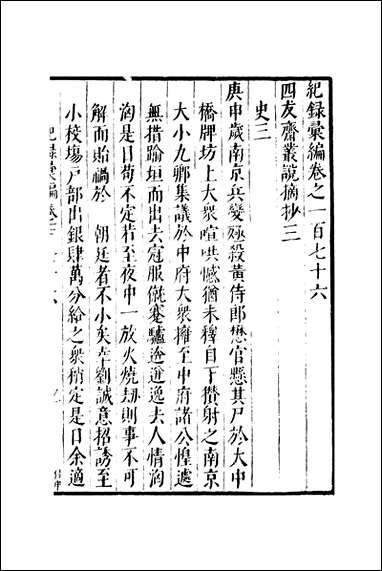 紀録彙編卷之一百七十六
四友齋叢說摘抄三
史三
庚申歲南京兵變殛殺黃侍郎懋官懸其尸於大中
橋牌坊上大衆喧哄憾猶未釋自下攢射之南京
大小九卿集議於中府大衆擁至中府諸公惶遽
無措踰垣而出去冠服僦蹇驢逾迯逸去人情洶
洶是日苟不定若至夜中一放火燒劫則事不可
解而貽禍於 朝廷者不小矣幸劉誠意招誘至
小校塲戶部出銀肆萬分給之衆稍定是日余適